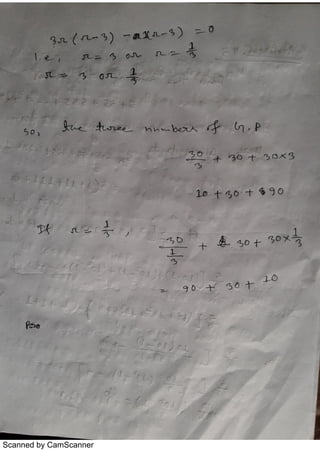 3r(r-3) -1(r-3) = 0
i.e., r = 3 or r = 1/3
r = 3 or 1/3
so, the three numbers of G.P
30/3 + 30 + 30×3
10 + 30 + 90
If r = 1/3, 30/(1/3) + 30 + 30×1/3
= 90 + 30 + 10
Scanned by CamScanner